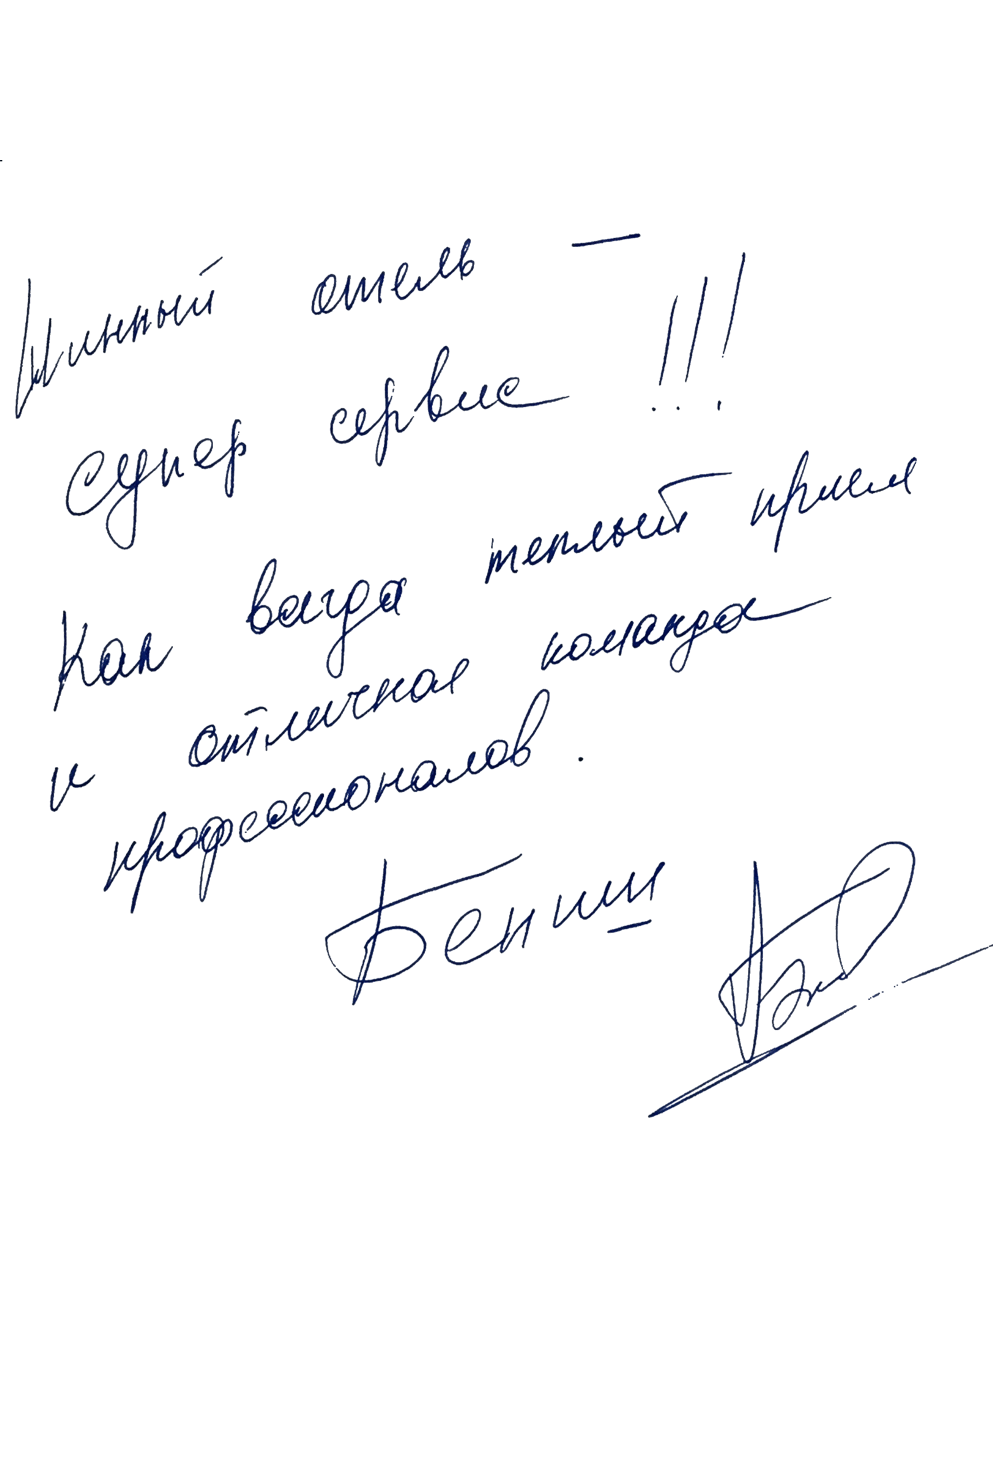 Чинный отель —
супер сервис !!!
Как всегда теплый прием
и отличная команда
профессионалов.